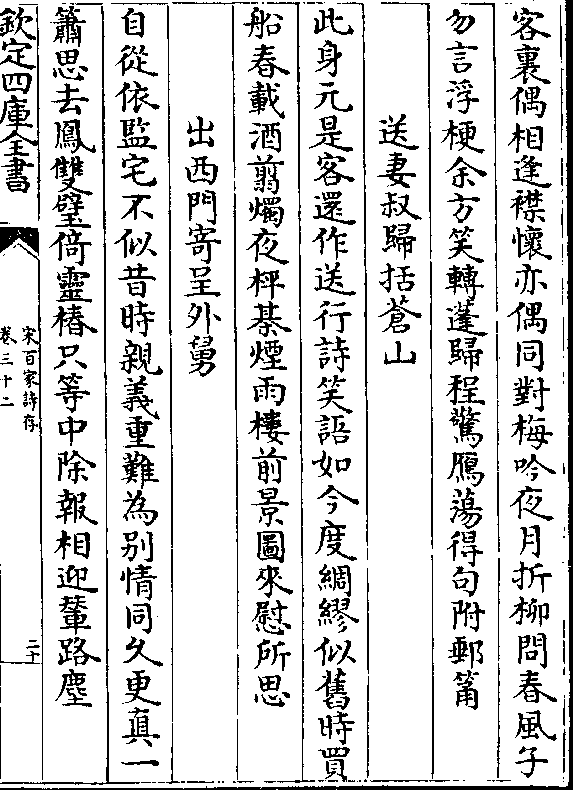 客裏偶相逢襟懷亦偶同對梅吟夜月折柳問春風子
勿言浮梗余方笑轉蓬歸程驚鴈蕩得句附郵筩
送妻叔歸括蒼山
此身元是客還作送行詩笑語如今度綢繆似舊時買
船春載酒翦燭夜枰棊煙雨樓前景圖來慰所思
出西門寄呈外舅
自從依監宅不似昔時親義重難為别情同久更真一
簫思去鳳雙璧倚靈椿只等中除報相迎輦路塵
欽定四庫全書
宋百家詩存
卷三十二
二十